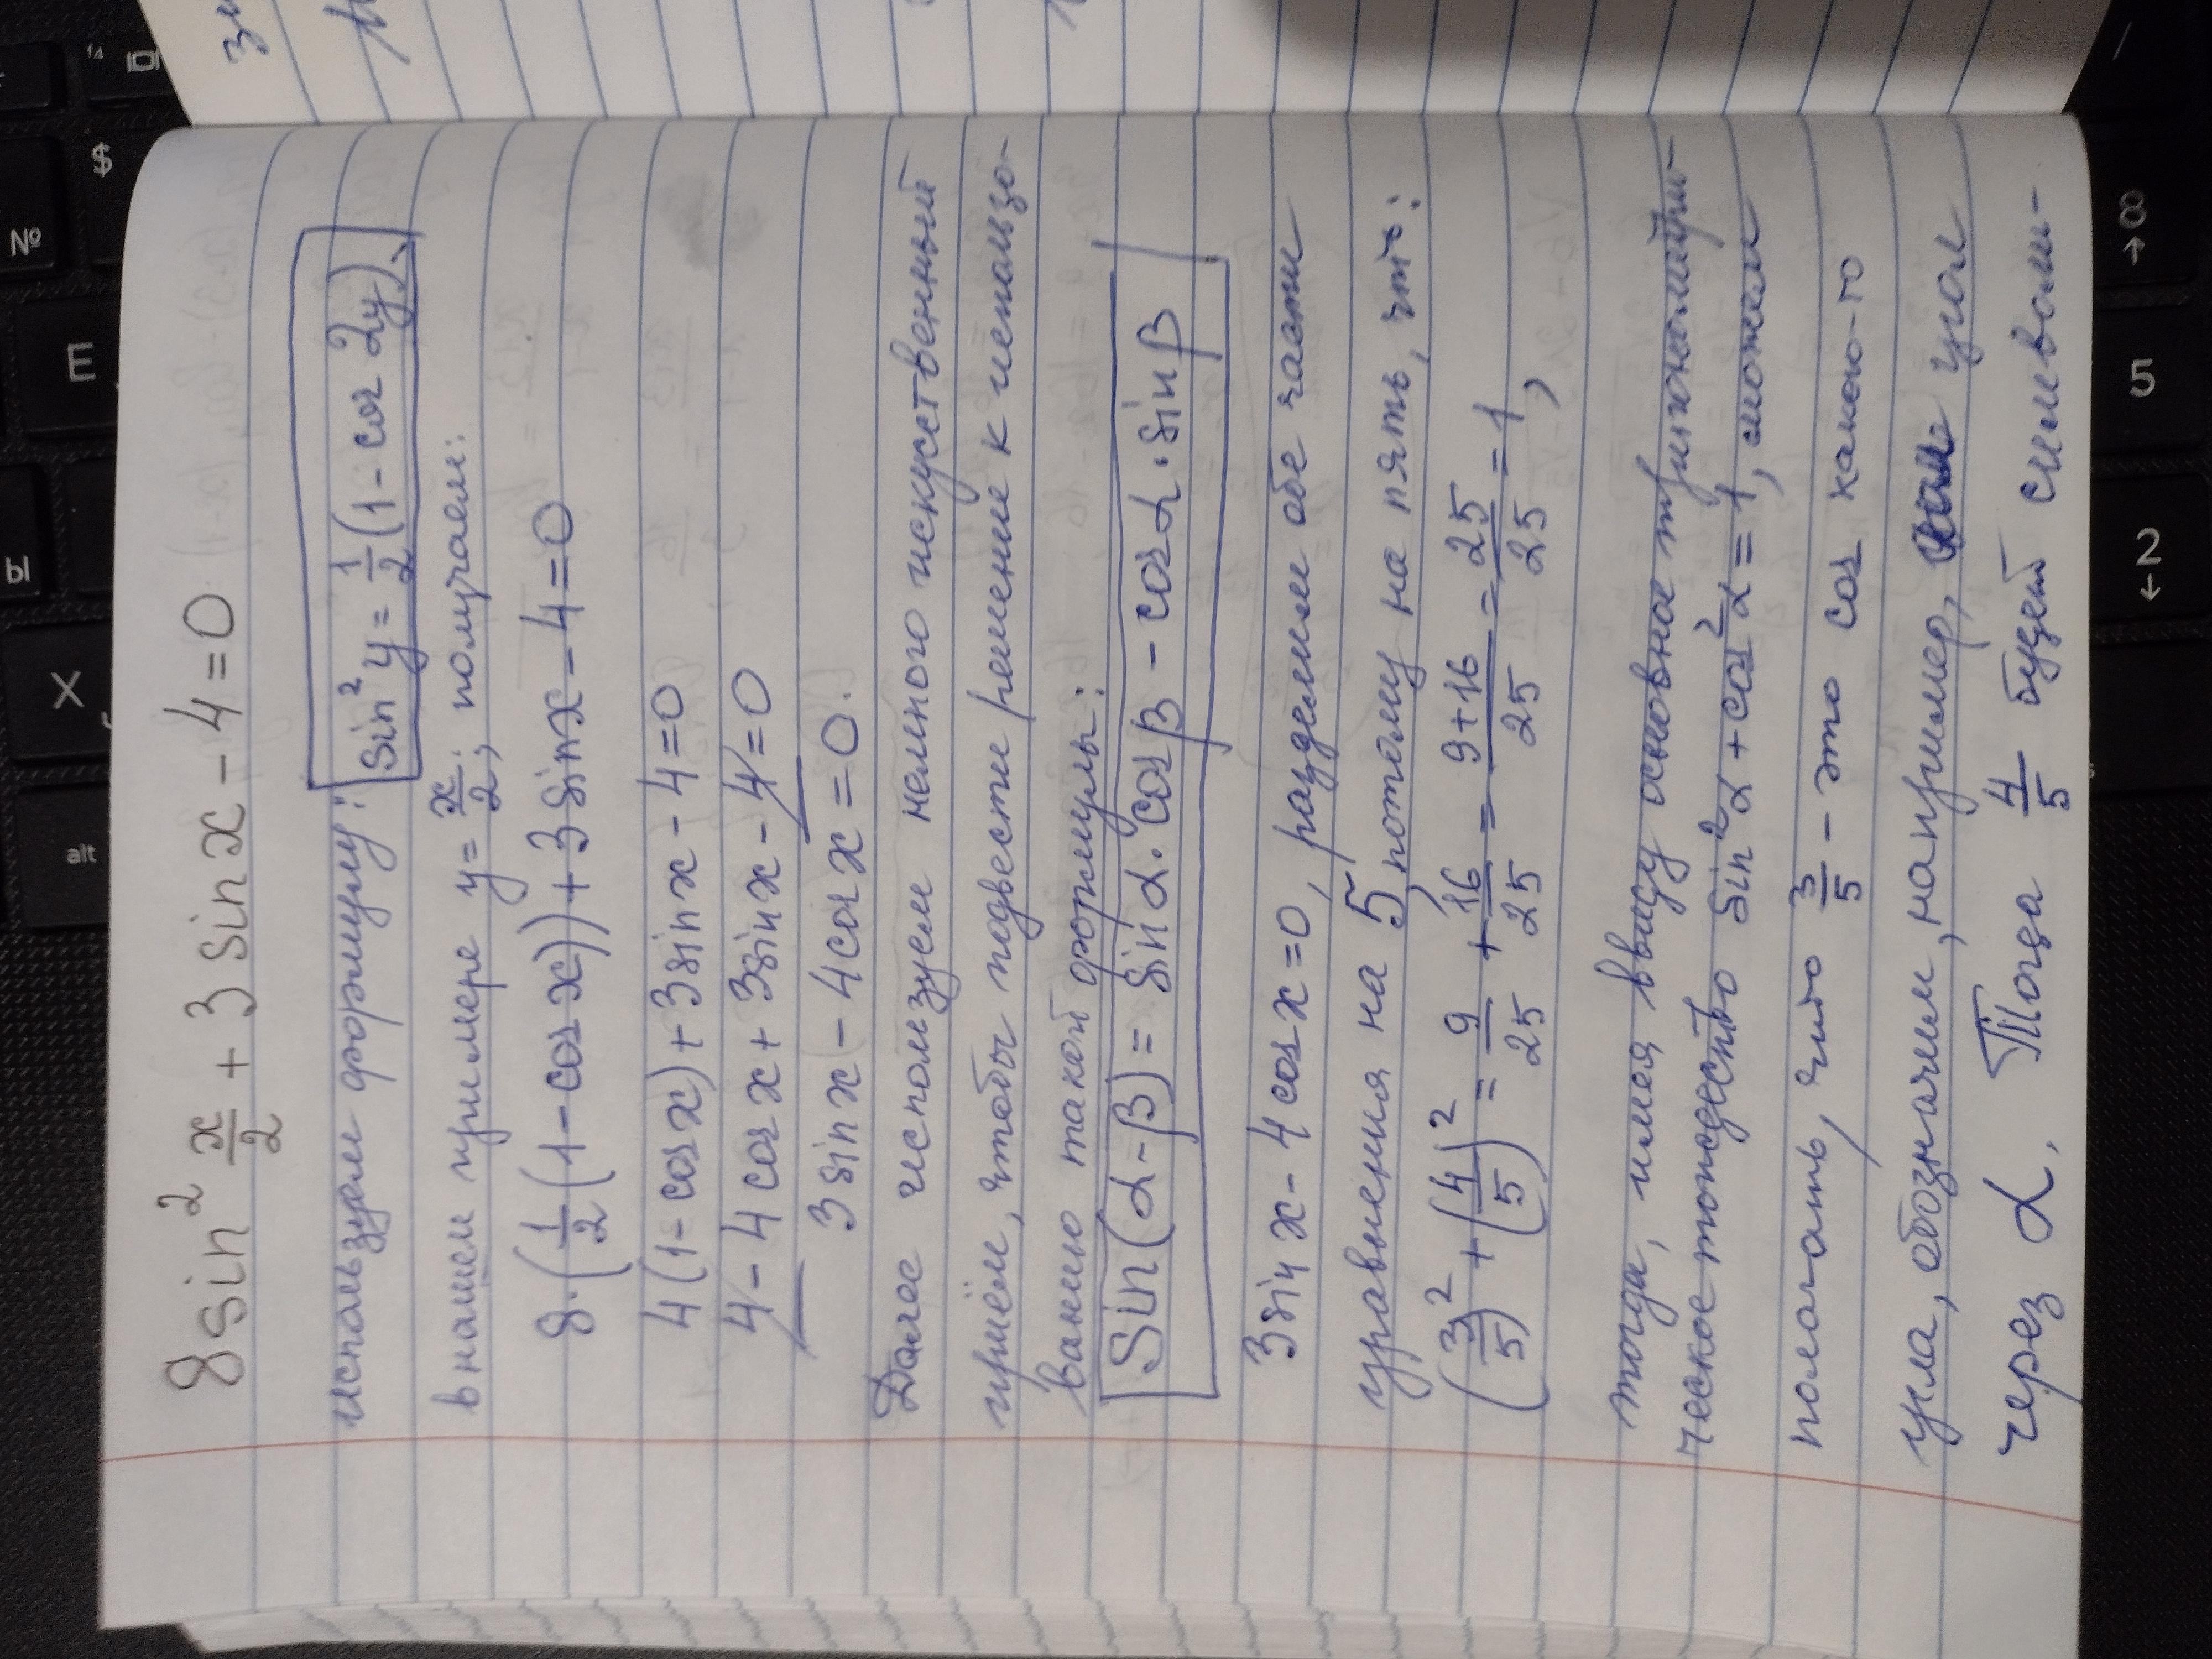 8 sin² x/2 + 3 sin x - 4 = 0
используем формулу: sin² y = 1/2 (1 - cos 2y),
в нашем примере y = x/2; получаем:
8·(1/2 (1 - cos x)) + 3 sin x - 4 = 0
4 (1 - cos x) + 3 sin x - 4 = 0
4 - 4 cos x + 3 sin x - 4 = 0
3 sin x - 4 cos x = 0.
Далее используем немного искуственный
приём, чтобы подвести решение к использо-
ванию такой формулы:
Sin (α - β) = sin α · cos β - cos α · sin β
3 sin x - 4 cos x = 0, разделим обе части
уравнения на 5, потому на пять, что:
(3/5)² + (4/5)² = 9/25 + 16/25 = 9+16/25 = 25/25 = 1,
тогда, имея ввиду основное тригонометри-
ческое тождество sin² α + cos² α = 1, сможем
полагать, что 3/5 - это cos какого-то
угла, обозначим, например, угол
через α. Тогда 4/5 будет символи-
№
$
E
Ы
X
alt
5
2